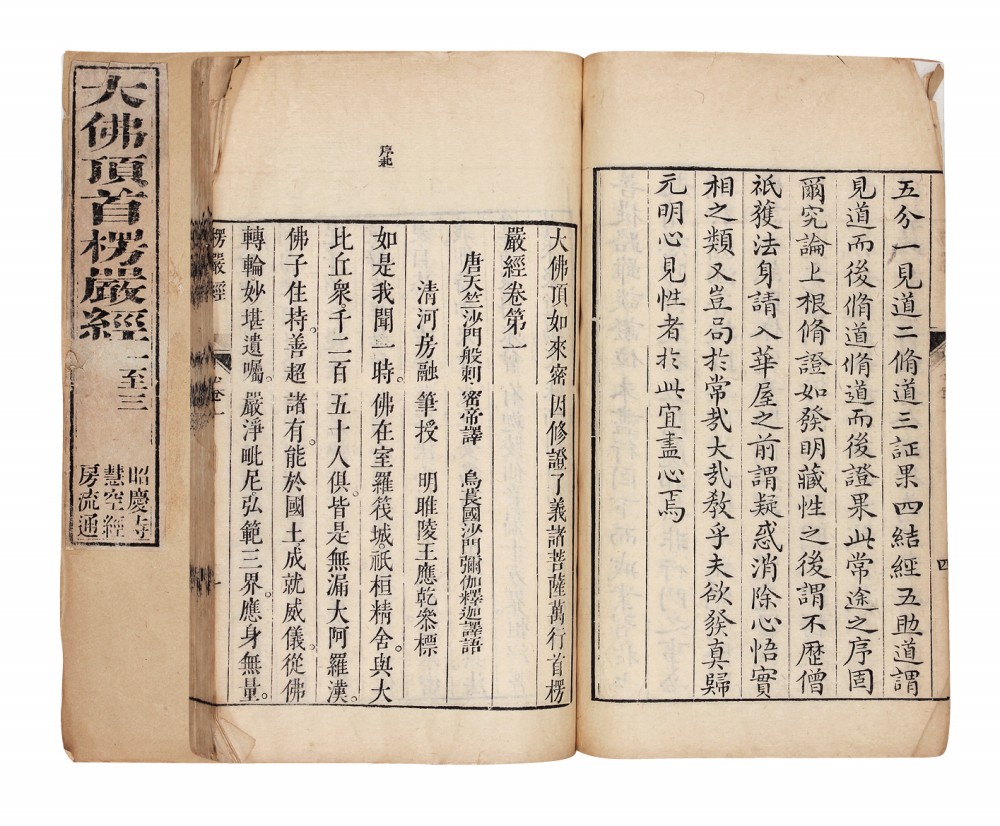 五分一見道二脩道三証果四結經五助道謂
見道而後脩道脩道而後證果此常途之序固
爾究論上根脩證如發明藏性之後謂不歷僧
祇獲法身請入華屋之前謂疑惑消除心悟實
相之類又豈局於常㢤大㢤教乎夫欲發真歸
元明心見性者於此宜盡心焉
四
大佛頂如來密因修證了義諸菩薩萬行首楞
嚴經卷第一
唐天竺沙門般剌密帝譯 烏萇國沙門彌伽釋迦譯語
清河房融筆授 明睢陵王應乾叅標
如是我聞一時。佛在室羅筏城。祇桓精舍。與大
比丘衆。千二百五十人俱。皆是無漏大阿羅漢。
佛子住持。善超諸有。能於國土。成就威儀。從佛
轉輪妙堪遺囑。嚴淨毗尼。弘範三界。應身無量。
楞嚴經
大佛頂首楞嚴經一至三
昭慶寺
慧空經
房流通